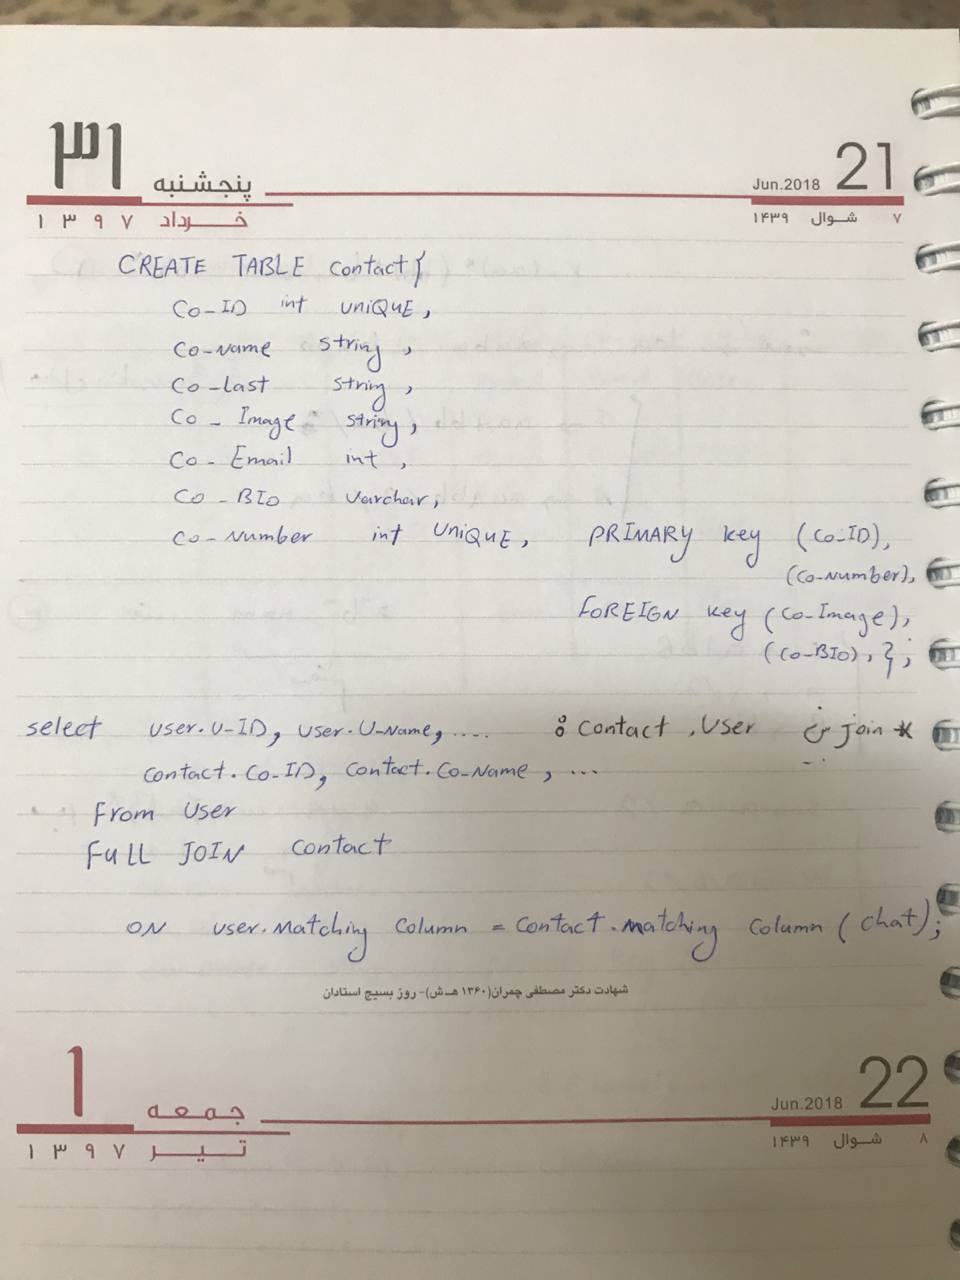 ۳۱
پنجشنبه
۱۳۹۷ خرداد
21
Jun.2018
۷ شوال ۱۴۳۹
CREATE TABLE contact{
Co-ID int UNIQUE,
Co-Name string,
Co-Last string,
Co-Image string,
Co-Email int,
Co-BIO varchar,
Co-Number int UNIQUE, PRIMARY key (Co-ID),
(Co-Number),
FOREIGN key (Co-Image),
(Co-BIO), };
* join بین contact, User :
select user.U-ID, user.U-Name, ....
contact.Co-ID, contact.Co-Name, ...
From user
FULL JOIN contact
ON user.matching column = contact.matching column (chat);
شهادت دکتر مصطفی چمران(۱۳۶۰ هـ.ش)-روز بسیج استادان
۱
جمعه
۱۳۹۷ تیر
22
Jun.2018
۸ شوال ۱۴۳۹